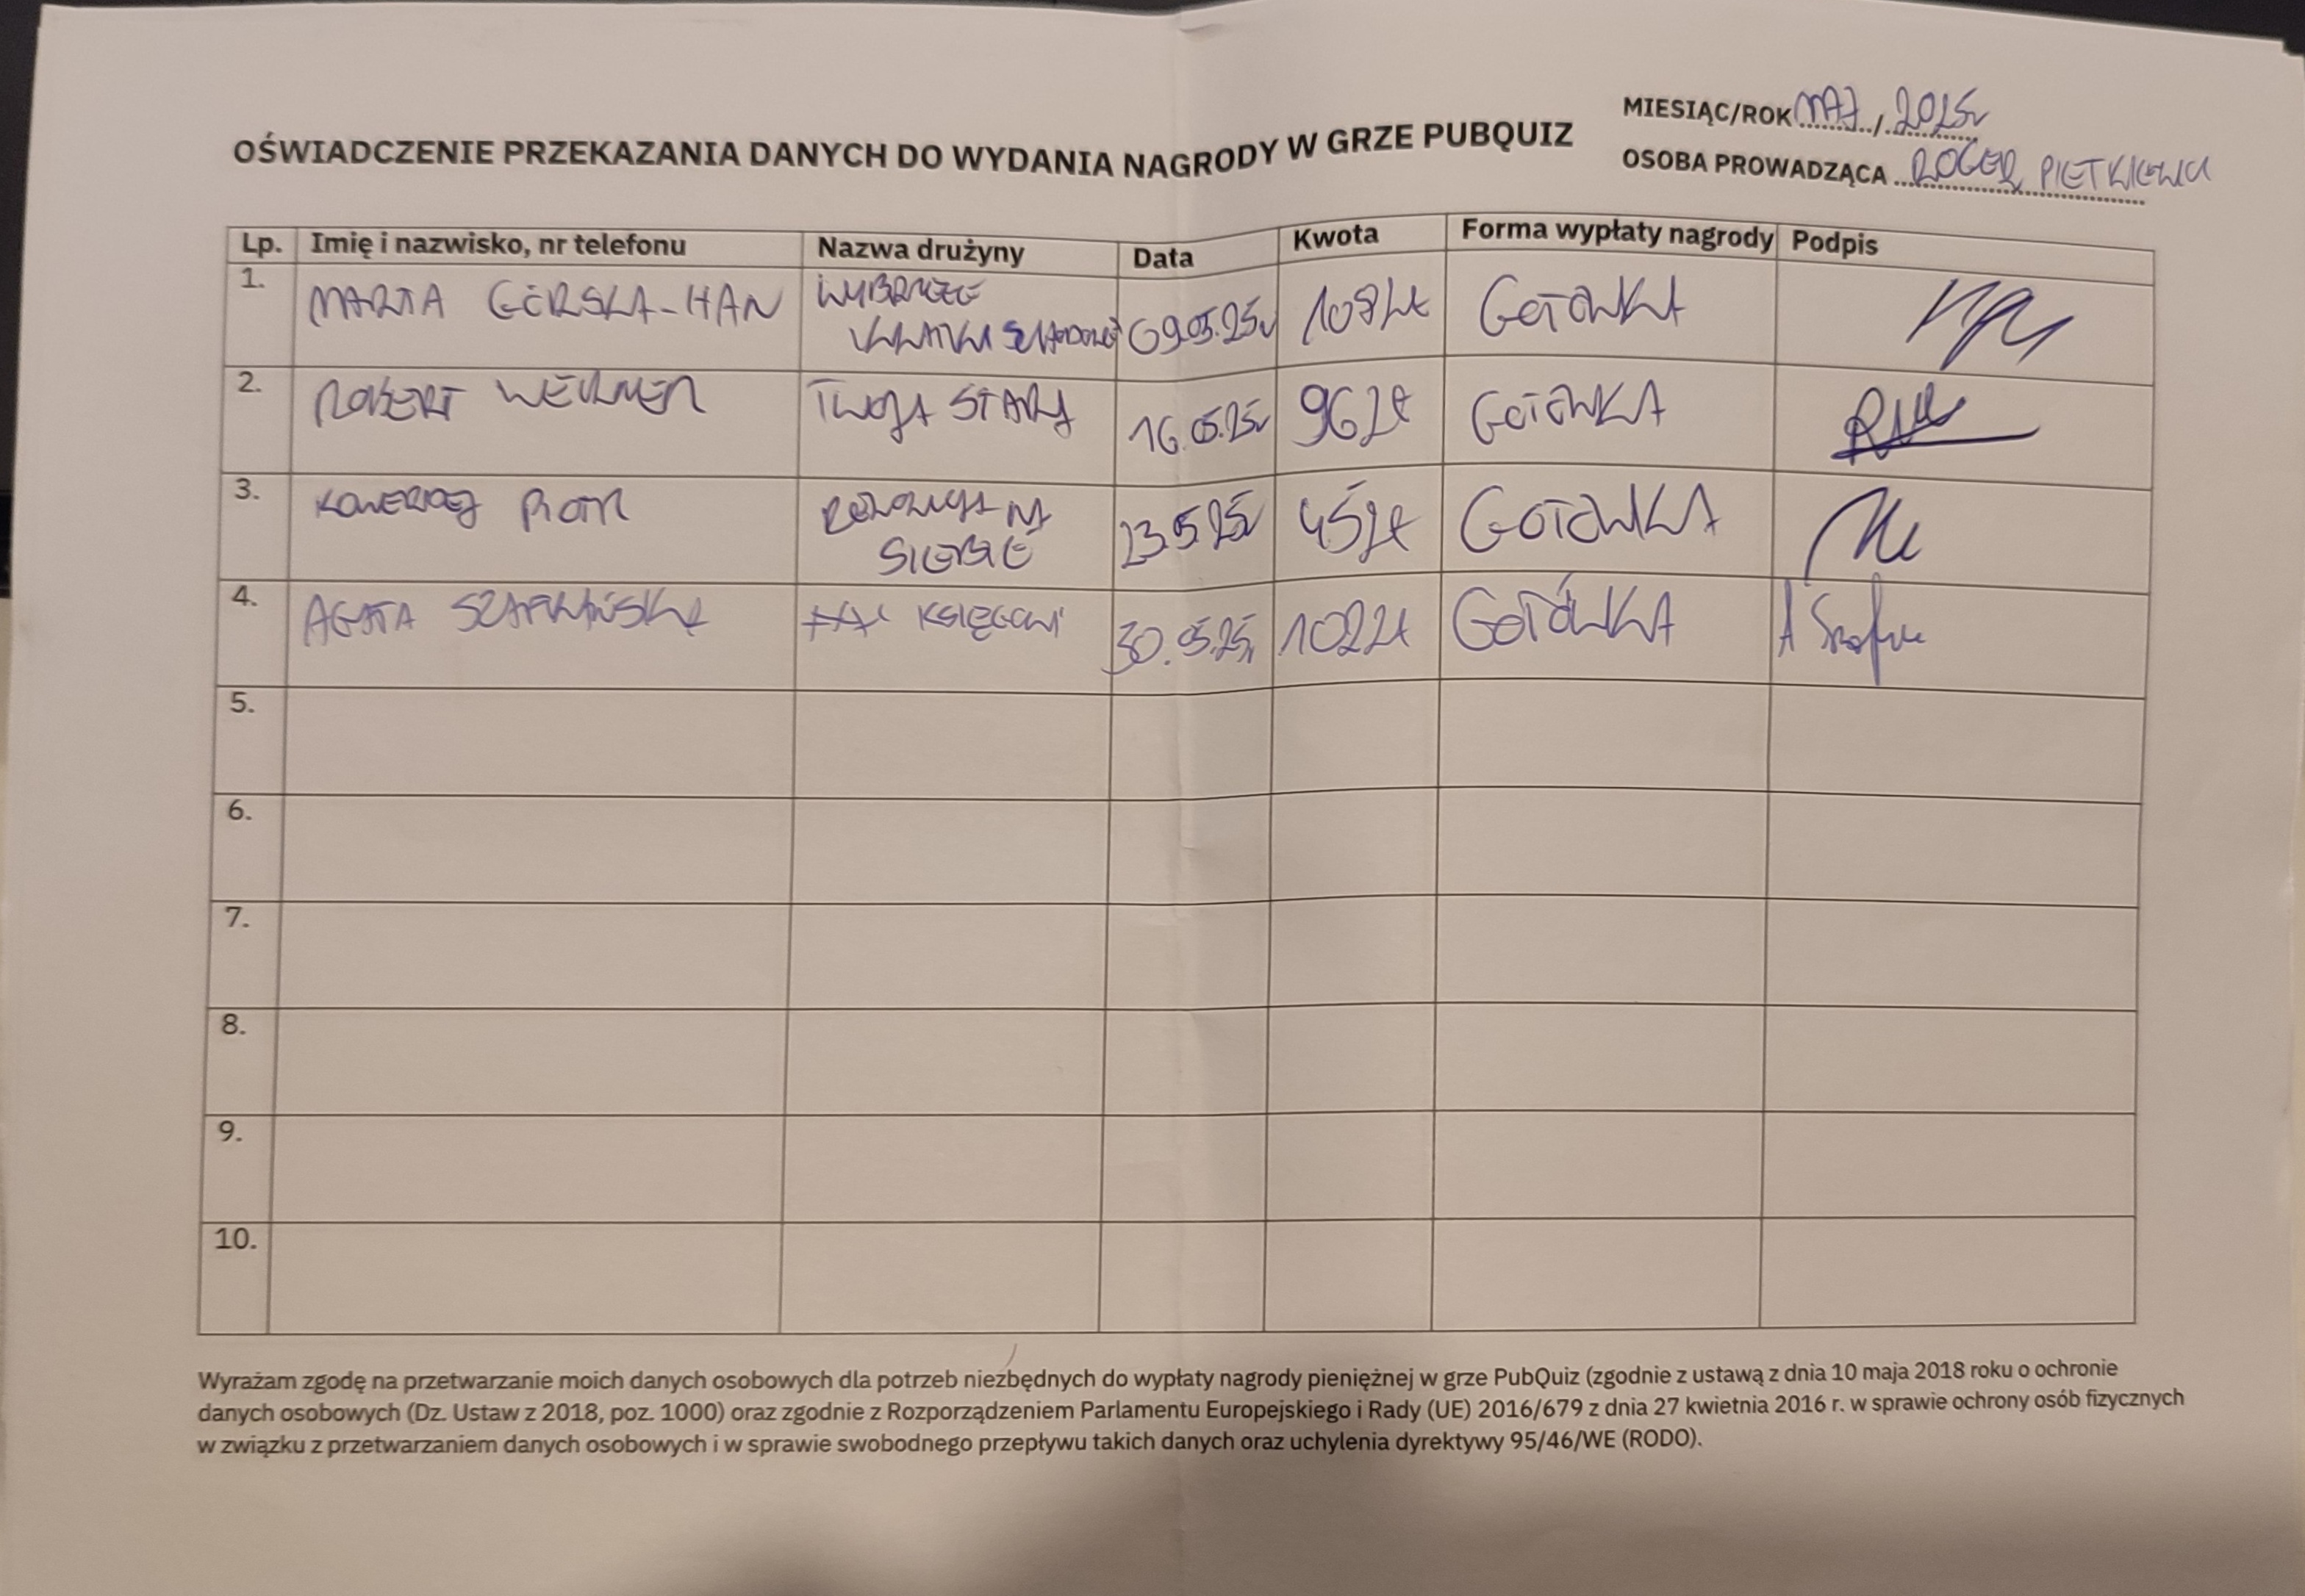 MIESIĄC/ROK MAJ / 2025r
OŚWIADCZENIE PRZEKAZANIA DANYCH DO WYDANIA NAGRODY W GRZE PUBQUIZ
OSOBA PROWADZĄCA ROGER PIETKIEWICZ
Lp. Imię i nazwisko, nr telefonu Nazwa drużyny Data Kwota Forma wypłaty nagrody Podpis
1. MARTA GÓRSKA-HAN WYBRZEŻE KLATKI SCHODOWEJ 09.05.25r 108zł GOTÓWKA
2. ROBERT TWOJA STARA 16.05.25r 96zł GOTÓWKA
3. PIOTR REZERWACJA NA SIEBIE 23.5.25r 45zł GOTÓWKA
4. AGATA SZAFRAŃSKA KSIĘGOWI 30.05.25r 102zł GOTÓWKA
5.
6.
7.
8.
9.
10.
Wyrażam zgodę na przetwarzanie moich danych osobowych dla potrzeb niezbędnych do wypłaty nagrody pieniężnej w grze PubQuiz (zgodnie z ustawą z dnia 10 maja 2018 roku o ochronie
danych osobowych (Dz. Ustaw z 2018, poz. 1000) oraz zgodnie z Rozporządzeniem Parlamentu Europejskiego i Rady (UE) 2016/679 z dnia 27 kwietnia 2016 r. w sprawie ochrony osób fizycznych
w związku z przetwarzaniem danych osobowych i w sprawie swobodnego przepływu takich danych oraz uchylenia dyrektywy 95/46/WE (RODO).